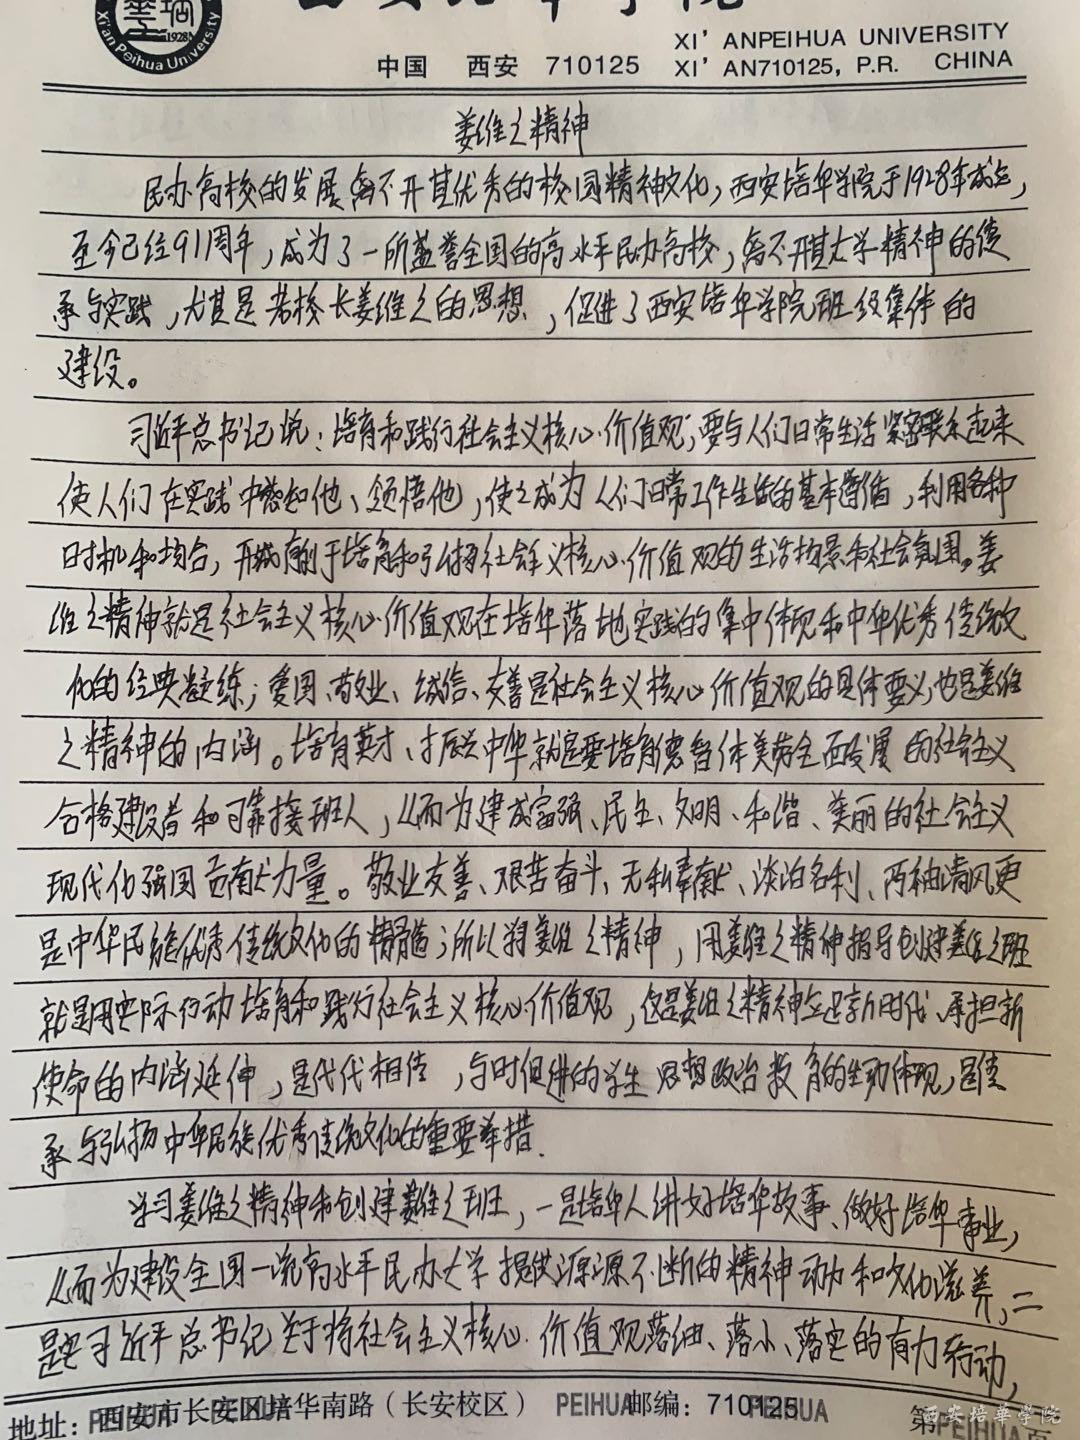 西安培华学院
Xi'an Peihua University
1928
XI' ANPEIHUA UNIVERSITY
中国 西安 710125 XI' AN710125, P.R. CHINA
姜维之精神
民办高校的发展离不开其优秀的校园精神文化,西安培华学院于1928年成立,
至今已经91周年,成为了一所盛誉全国的高水平民办高校,离不开其大学精神的传
承与实践,尤其是老校长姜维之的思想,促进了西安培华学院班级集体的
建设。
习近平总书记说:培育和践行社会主义核心价值观,要与人们日常生活紧密联系起来
使人们在实践中感知他、领悟他,使之成为人们日常工作生活的基本遵循,利用各种
时机和场合,形成有利于培育和弘扬社会主义核心价值观的生活场景和社会氛围。姜
维之精神就是社会主义核心价值观在培华落地实践的集中体现和中华优秀传统文
化的经典凝练;爱国、敬业、诚信、友善是社会主义核心价值观的具体要义,也是姜维
之精神的内涵。培育英才、振兴中华就是要培育德智体美劳全面发展的社会主义
合格建设者和可靠接班人,从而为建成富强、民主、文明、和谐、美丽的社会主义
现代化强国贡献力量。敬业友善、艰苦奋斗、无私奉献、淡泊名利、两袖清风更
是中华民族优秀传统文化的精髓;所以将姜维之精神,用姜维之精神指导创建姜维之班
就是用实际行动培育和践行社会主义核心价值观,这是姜维之精神立足新时代、承担新
使命的内涵延伸,是代代相传,与时俱进的学生思想政治教育的生动体现,是传
承与弘扬中华民族优秀传统文化的重要举措.
学习姜维之精神和创建姜维之班,一是培华人讲好培华故事、做好培华事业,
从而为建设全国一流高水平民办大学提供源源不断的精神动力和文化滋养,二
是实习近平总书记关于将社会主义核心价值观落细、落小、落实的有力行动,
地址:西安市长安区培华南路(长安校区) 邮编:710125 第 页
PEIHUA PEIHUA PEIHUA PEIHUA PEIHUA
西安培華學院